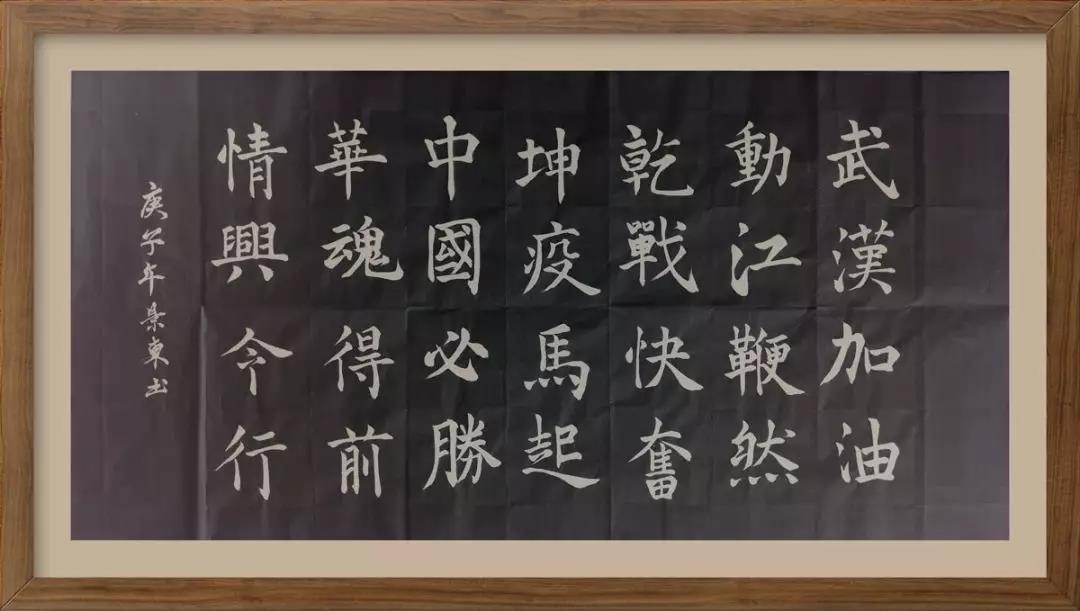 武漢加油
動江鞭然
乾戰快奮
坤疫馬起
中國必勝
華魂得前
情興令行
庚子年景東书